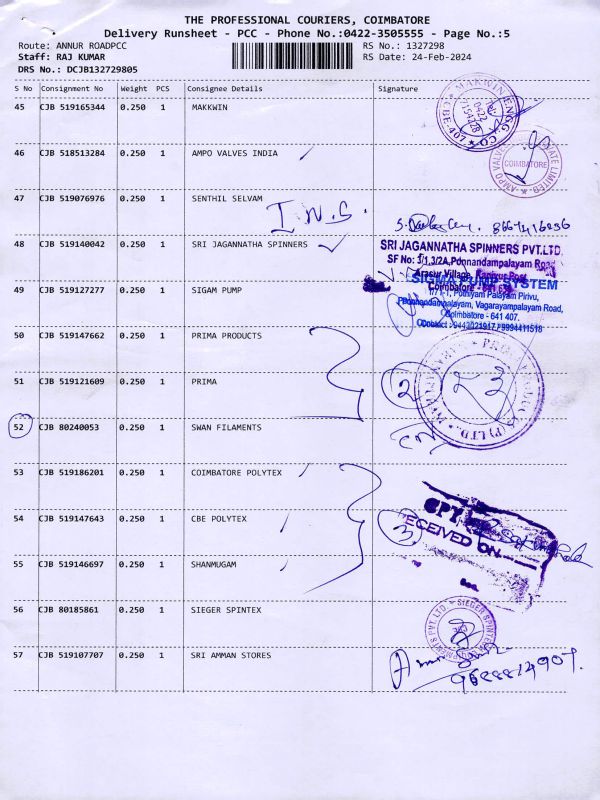 THE PROFESSIONAL COURIERS, COIMBATORE
Delivery Runsheet - PCC - Phone No.:0422-3505555 - Page No.:5
Route: ANNUR ROADPCC
RS No.: 1327298
Staff: RAJ KUMAR
RS Date: 24-Feb-2024
DRS No.: DCJB132729805
S No Consignment No Weight PCS Consignee Details Signature
45 CJB 519165344 0.250 1 MAKKWIN
MAKKWIN ENGG. CO
CBE-407
46 CJB 518513284 0.250 1 AMPO VALVES INDIA
COIMBATORE
47 CJB 519076976 0.250 1 SENTHIL SELVAM
I.N.S.
48 CJB 519140042 0.250 1 SRI JAGANNATHA SPINNERS
SRI JAGANNATHA SPINNERS PVT.LTD.
SF No: 3/1,3/2A,Ponnandampalayam Road
Arasur Village, Kaniyur Post
Coimbatore - 641 659
49 CJB 519127277 0.250 1 SIGAM PUMP
SIGMA PUMP SYSTEM
1/71-1, Pothiyam Palayam Pirivu,
Ponnandampalayam, Vagarayampalayam Road,
Coimbatore - 641 407.
Contact : 9443021917 / 9994411518
50 CJB 519147662 0.250 1 PRIMA PRODUCTS
51 CJB 519121609 0.250 1 PRIMA
2
52 CJB 80240053 0.250 1 SWAN FILAMENTS
53 CJB 519186201 0.250 1 COIMBATORE POLYTEX
54 CJB 519147643 0.250 1 CBE POLYTEX
3
CPT
RECEIVED ON
55 CJB 519146697 0.250 1 SHANMUGAM
56 CJB 80185861 0.250 1 SIEGER SPINTEX
57 CJB 519107707 0.250 1 SRI AMMAN STORES